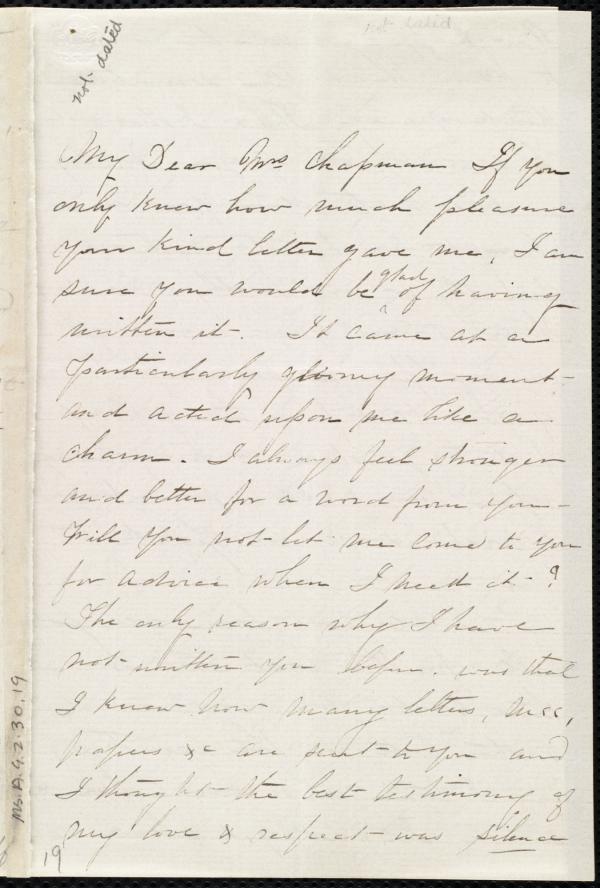 not dated
not dated
My Dear Mrs Chapman If you
only knew how much pleasure
your kind letter gave me, I am
sure you would be glad of having
written it. It came at a
particularly gloomy moment
and acted upon me like a
charm. I always feel stronger
and better for a word from you -
Will you not let me come to you
for advice when I need it - ?
The only reason why I have
not written you before. was that
I knew how many letters, mss,
papers &c are sent to you and
I thought the best testimony of
my love & respect was silence
Ms.A.9.2.30.19
19